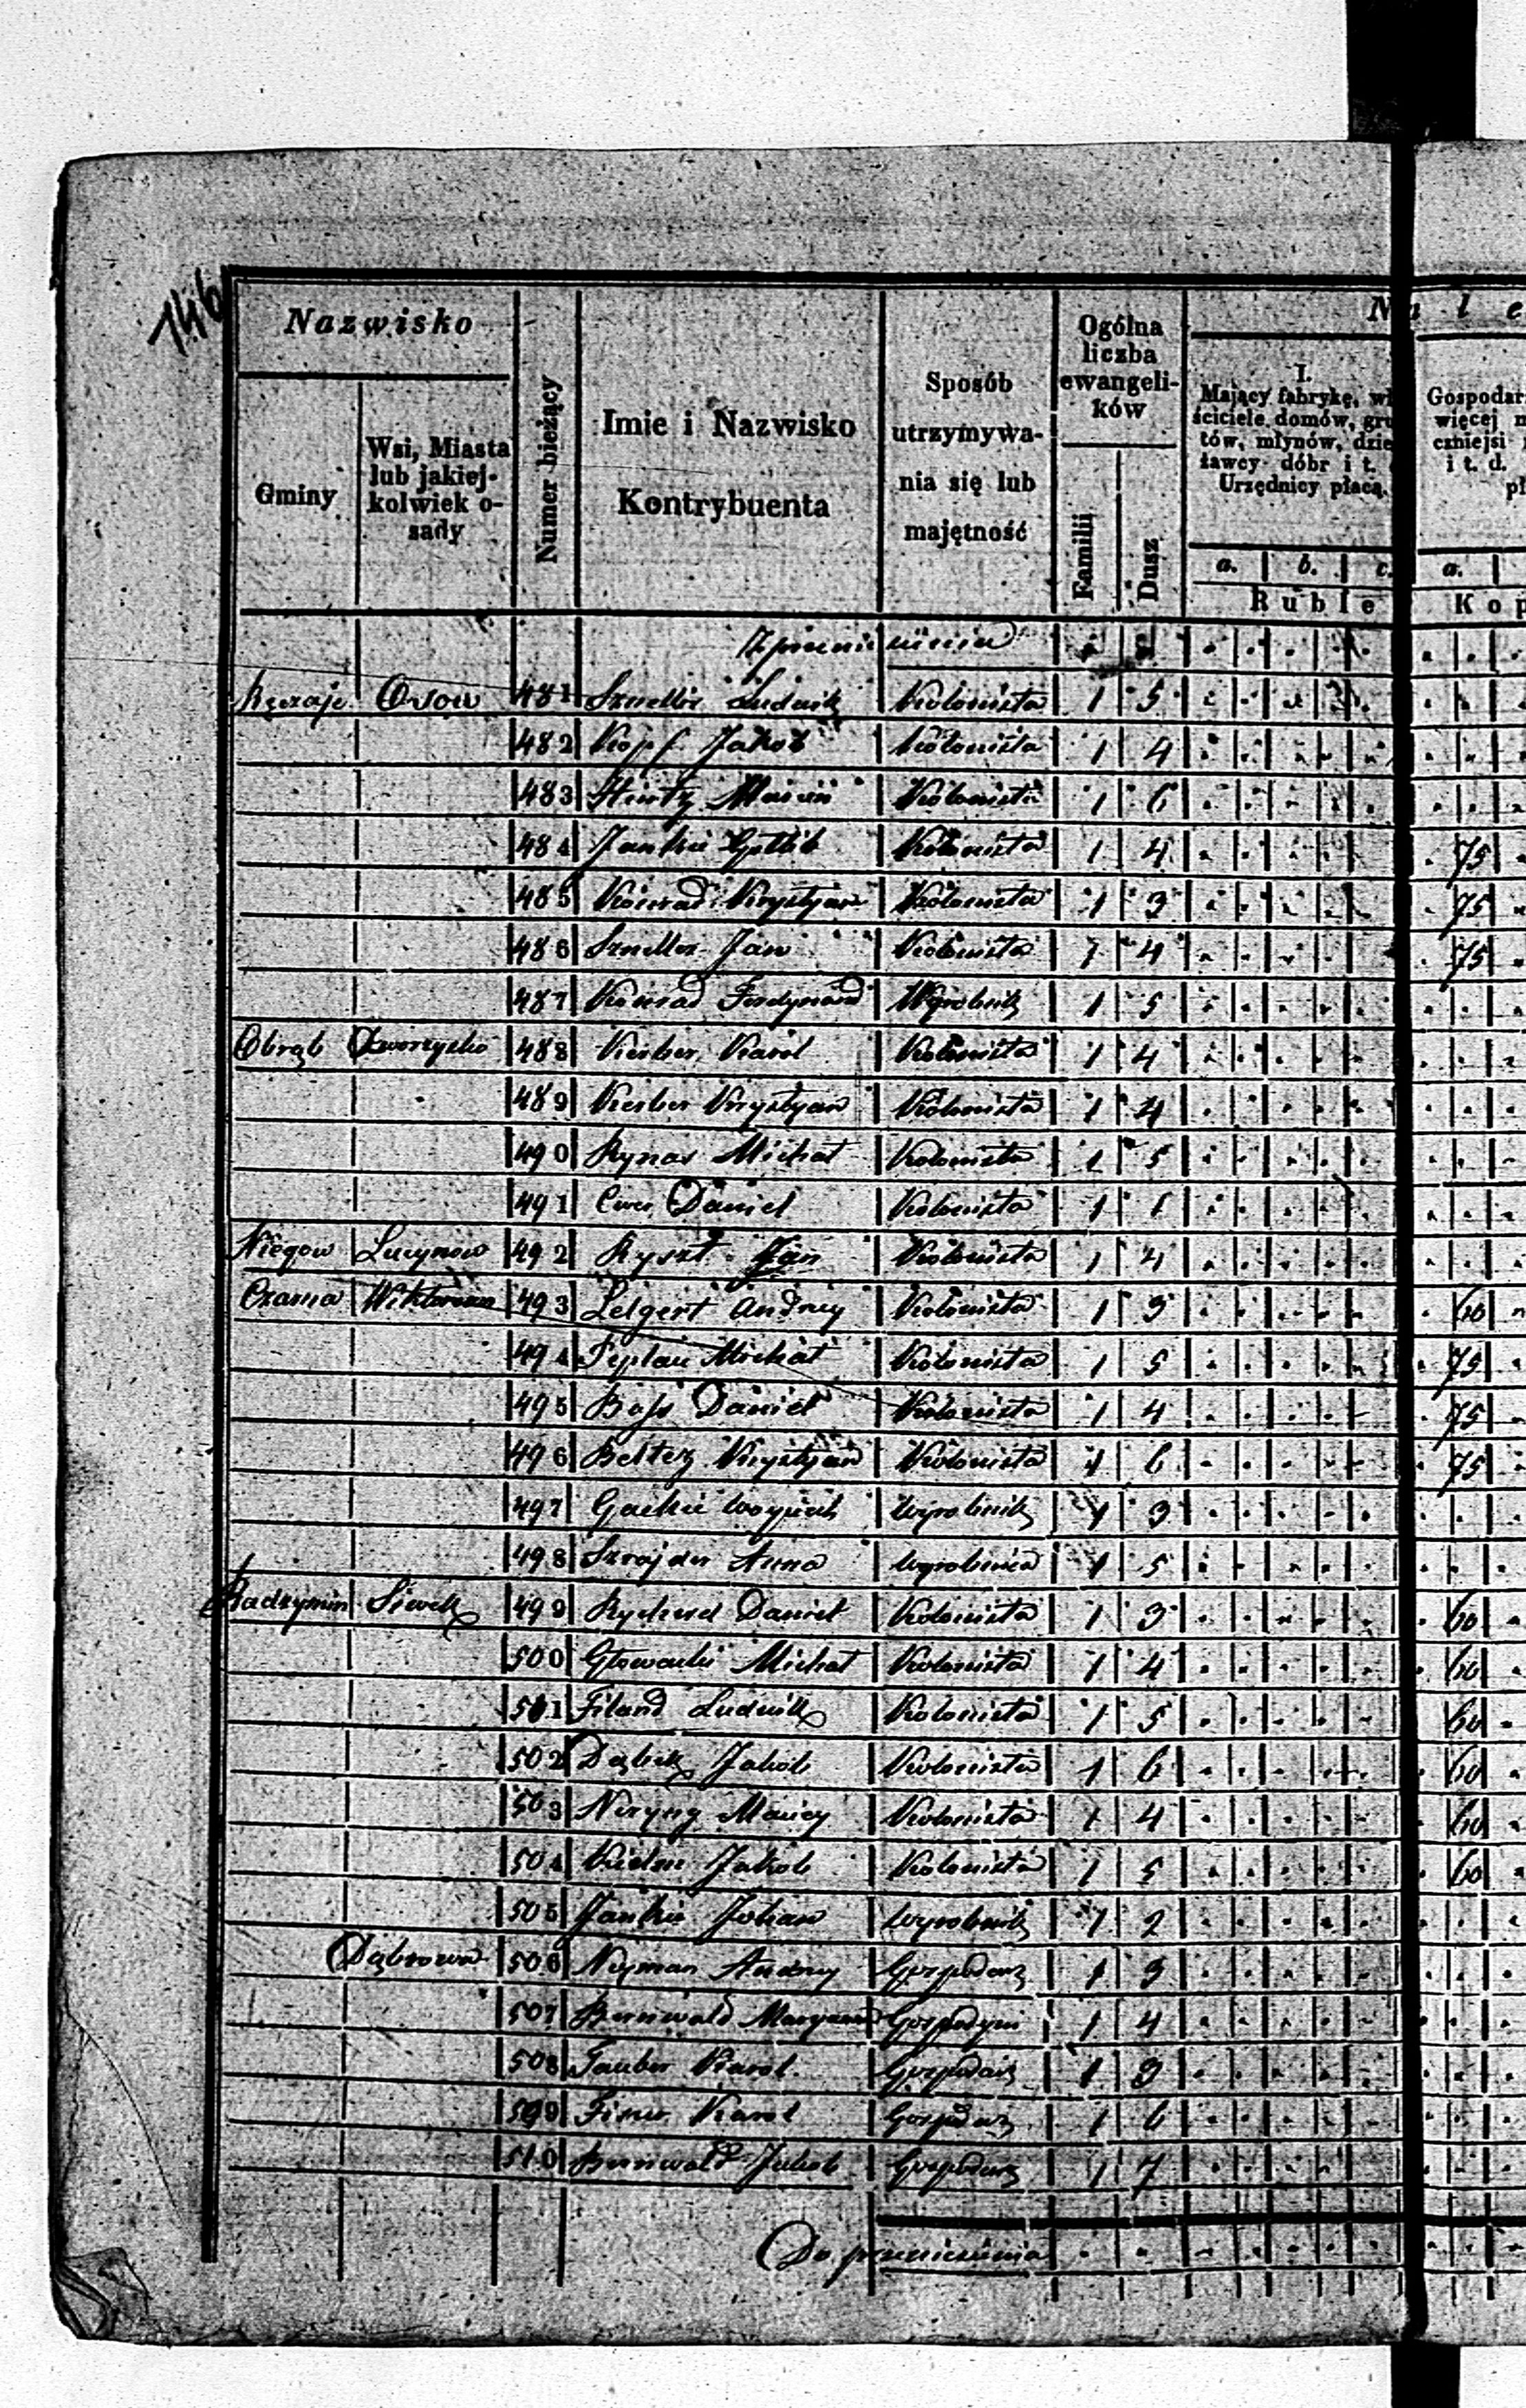 146
Nazwisko
Gminy
Wsi, Miasta lub jakiej-kolwiek o-sady
Numer bieżący
Imie i Nazwisko Kontrybuenta
Sposób utrzymywa-nia się lub majętność
Ogólna liczba ewangeli-ków
Familii
Dusz
I.
Mający fabrykę,
ściciele domów,
tów, młynów,
żawcy dóbr i t.
Urzędnicy płacą.
a. b. c. a.
Ruble
Z przeniesienia
Ręczaje Osow 481 Szneller Ludwik Kolonista 1 5
482 Kopf Jakob Kolonista 1 4
483 Marcin Kolonista 1 6
484 Jankie Gottlib Kolonista 1 4 75
485 Konrad Krystjan Kolonista 1 3 75
486 Szneller Jan Kolonista 1 4 75
487 Konrad Ferdynand Wyrobnik 1 5
Obrąb Dworzysko 488 Kerber Karol Kolonista 1 4
489 Kerber Krystjan Kolonista 1 4
490 Rynas Michał Kolonista 1 5
491 Daniel Kolonista 1 1
Niegow Lucynow 492 Ryszt Jan Kolonista 1 4
Czarna 493 Lelgert Andrzej Kolonista 1 3 60
494 Teplau Michał Kolonista 1 5 75
495 Daniel Kolonista 1 4 75
496 Belter Krystjan Kolonista 1 6 75
497 Wojciech Wyrobnik 1 3
498 Szrajder Anna Wyrobnica 1 5
Radzymin Siwek 499 Daniel Kolonista 1 3 60
500 Głowacki Michał Kolonista 1 4 60
501 Filand Ludwik Kolonista 1 5 60
502 Dąbek Jakób Kolonista 1 6 60
503 Maciej Kolonista 1 4 60
504 Jakób Kolonista 1 5 60
505 Jankie Julian Wyrobnik 1 2
Dąbrowa 506 Neyman Andrzej Gospodarz 1 3
507 Bernwald Maryanna Gospodyni 1 4
508 Tauber Karol Gospodarz 1 3
509 Karol Gospodarz 1 6
510 Bernwald Jakób Gospodarz 1 7
Do przeniesienia